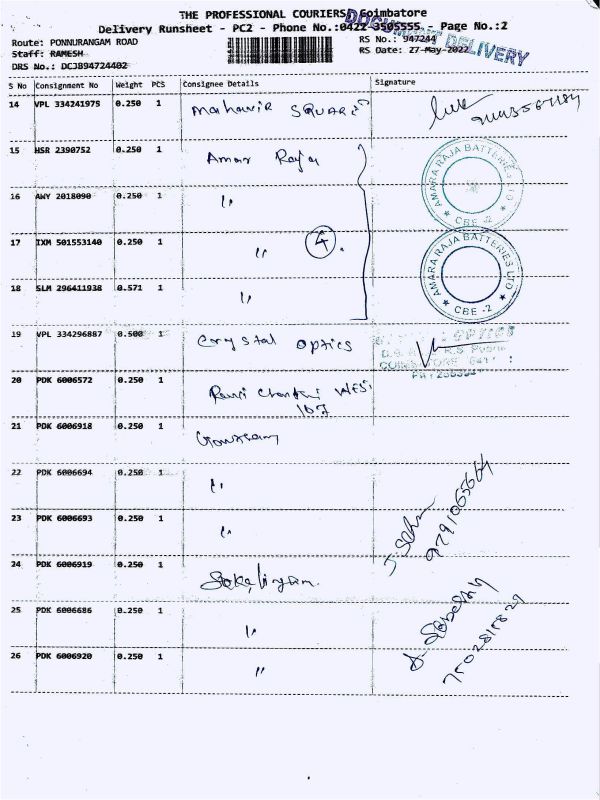 THE PROFESSIONAL COURIERS, Coimbatore
Delivery Runsheet - PC2 - Phone No.:0422-3505555 - Page No.:2
DOCUMENT DELIVERY
Route: PONNURANGAM ROAD
RS No.: 947244
Staff: RAMESH
RS Date: 27-May-2022
DRS No.: DCJB94724402
S No Consignment No Weight PCS Consignee Details Signature
14 VPL 334241975 0.250 1 Mahavir SQUARE
15 HSR 2390752 0.250 1 Amar Raja
16 AWY 2018090 0.250 1 "
17 IXM 501553140 0.250 1 " 4.
18 SLM 296411938 0.571 1 "
AMARA RAJA BATTERIES LTD
★ CBE -2 ★
AMARA RAJA BATTERIES LTD
★ CBE -2 ★
19 VPL 334296887 0.500 1 Crystal optics
OPTICS
20 PDK 6006572 0.250 1 107
21 PDK 6006918 0.250 1
22 PDK 6006694 0.250 1 "
23 PDK 6006693 0.250 1 "
9791065664
24 PDK 6006919 0.250 1
25 PDK 6006686 0.250 1 "
26 PDK 6006920 0.250 1 "